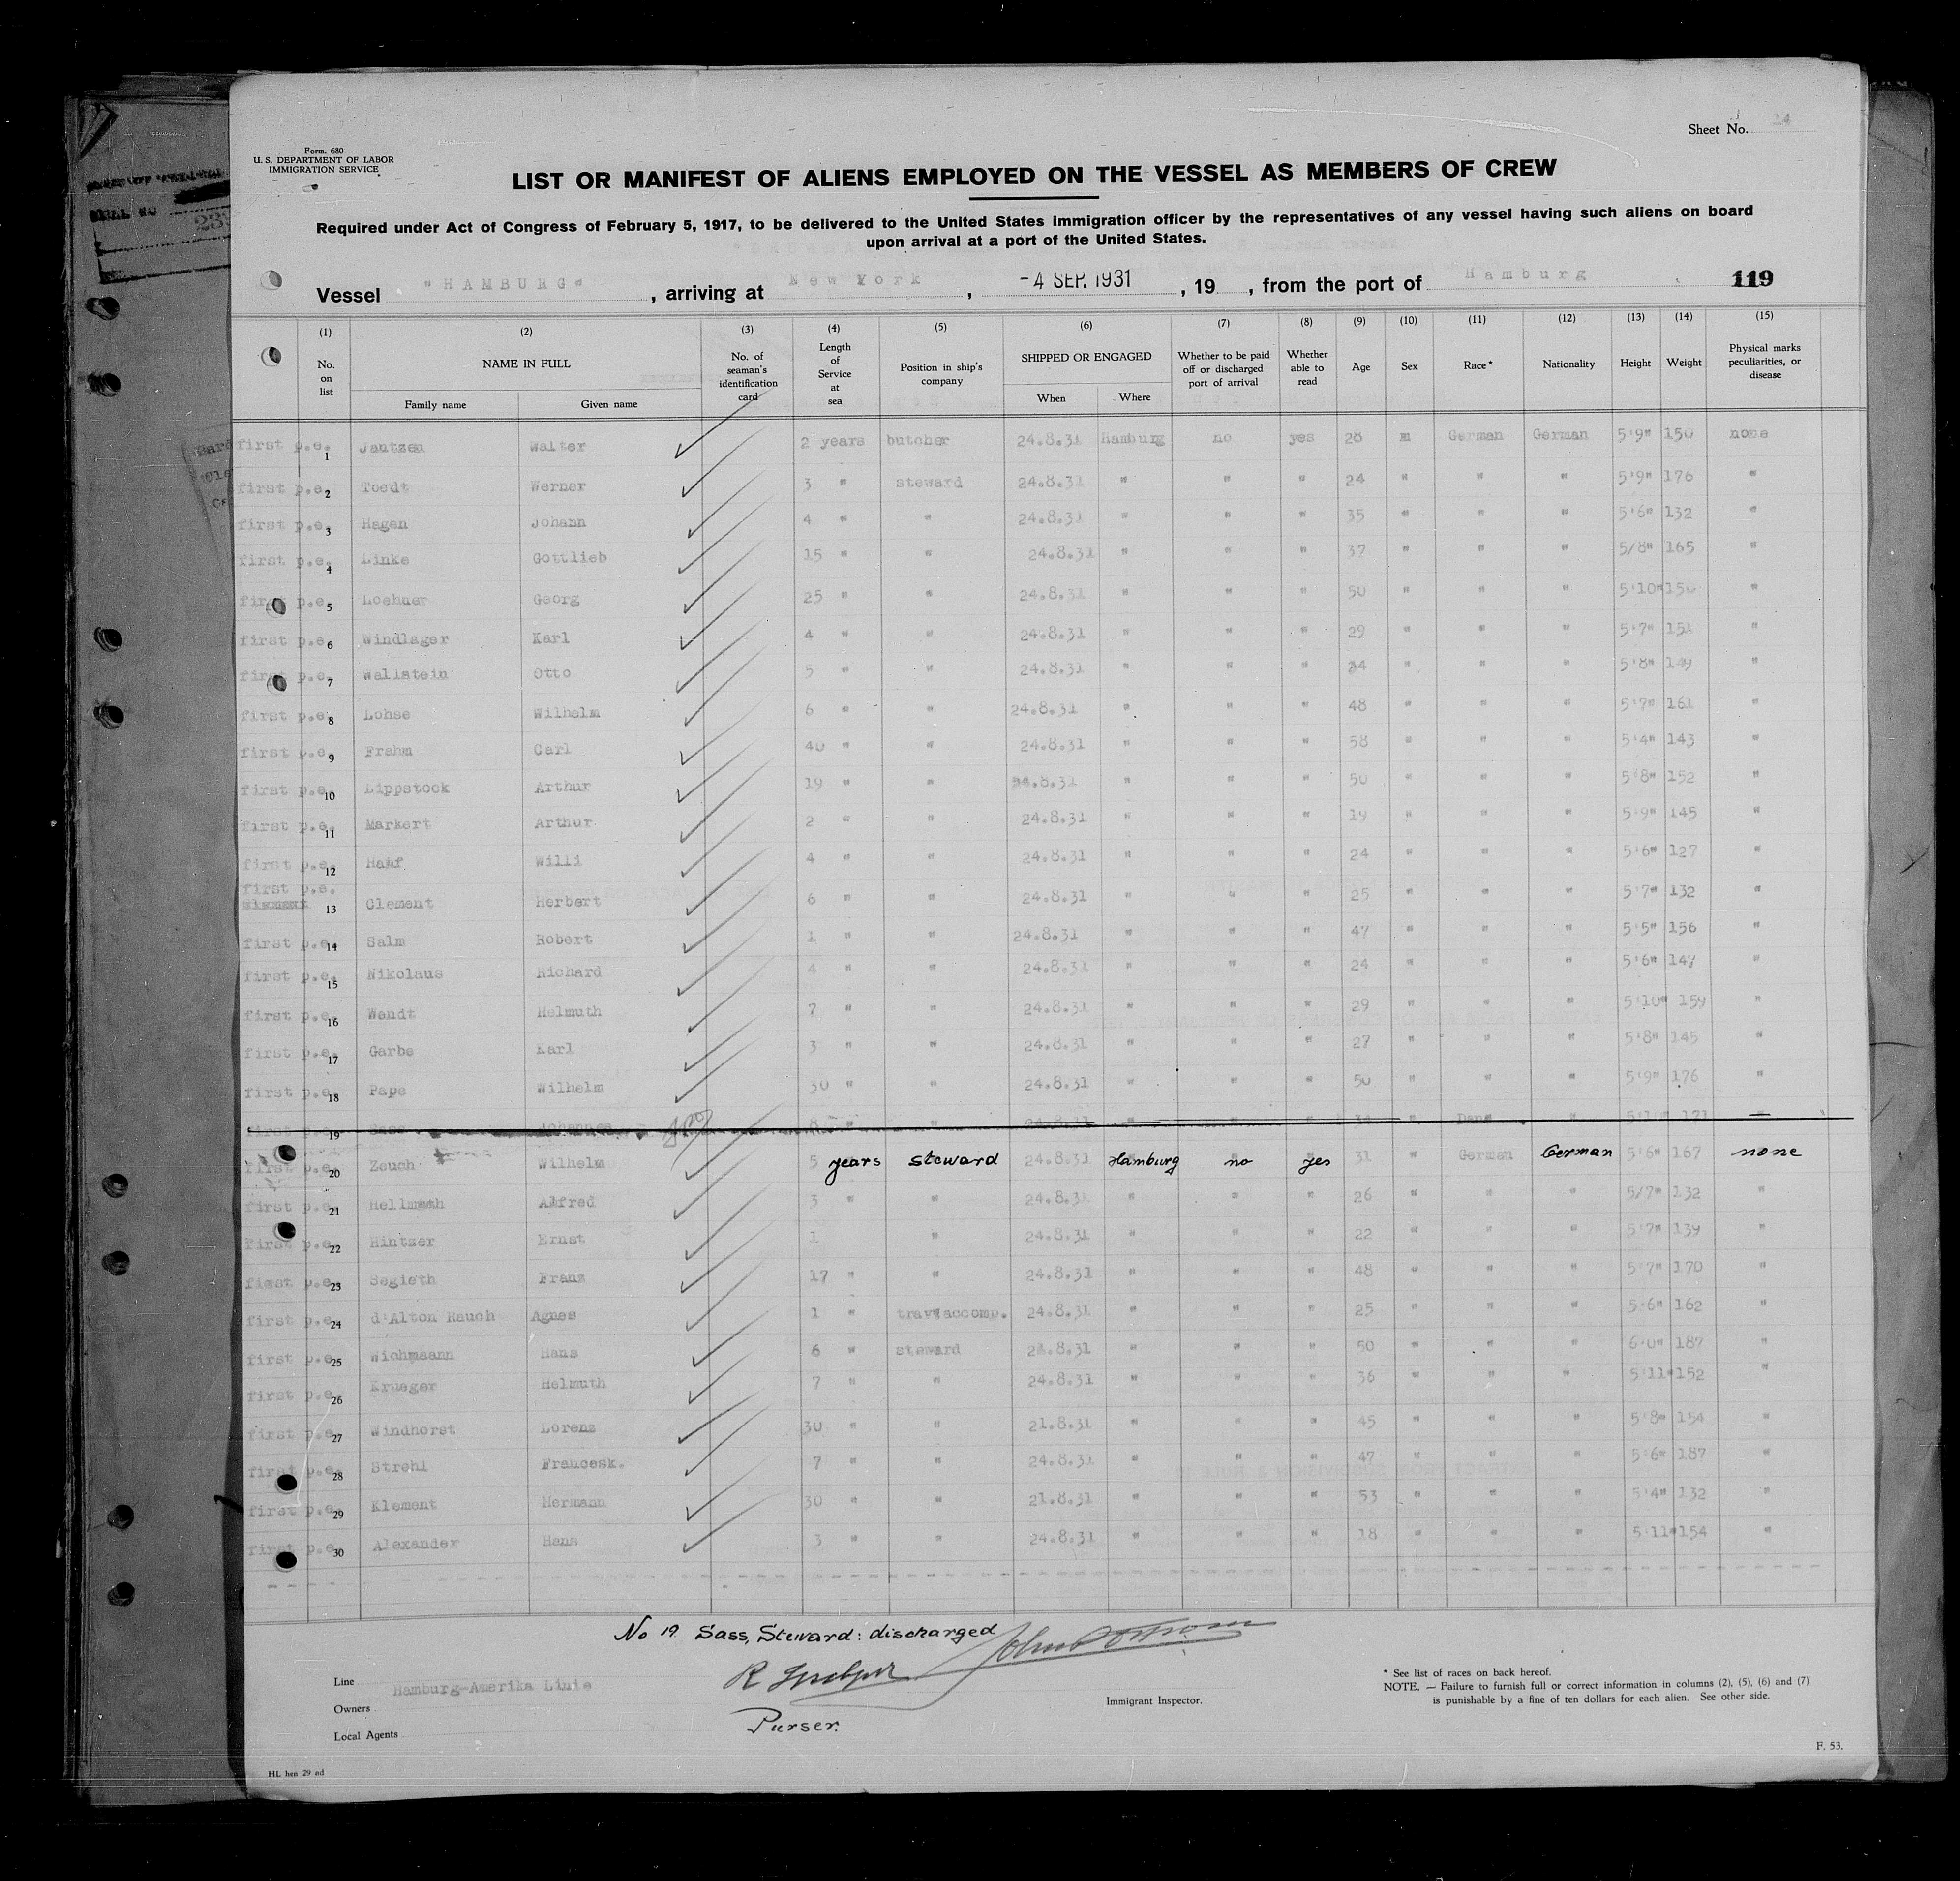 Sheet No. 24
Form. 680
U. S. DEPARTMENT OF LABOR
IMMIGRATION SERVICE
LIST OR MANIFEST OF ALIENS EMPLOYED ON THE VESSEL AS MEMBERS OF CREW
Required under Act of Congress of February 5, 1917, to be delivered to the United States immigration officer by the representatives of any vessel having such aliens on board
upon arrival at a port of the United States.
Vessel "HAMBURG", arriving at New York, -4 SEP. 1931, 19 , from the port of Hamburg 119
(1) (2) (3) (4) (5) (6) (7) (8) (9) (10) (11) (12) (13) (14) (15)
No. on list NAME IN FULL Family name Given name No. of seaman's identification card Length of Service at sea Position in ship's company SHIPPED OR ENGAGED When Where Whether to be paid off or discharged port of arrival Whether able to read Age Sex Race* Nationality Height Weight Physical marks peculiarities, or disease
first p.e. 1 Jantzen Walter 2 years butcher 24.8.31 Hamburg no yes 28 m German German 5'9" 150 none
first p.e. 2 Toedt Werner 3 " steward 24.8.31 " " " 24 " " " 5'9" 176 "
first p.e. 3 Hagen Johann 4 " " 24.8.31 " " " 35 " " " 5'6" 132 "
first p.e. 4 Linke Gottlieb 15 " " 24.8.31 " " " 37 " " " 5/8" 165 "
first p.e. 5 Loehner Georg 25 " " 24.8.31 " " " 50 " " " 5'10" 150 "
first p.e. 6 Windlager Karl 4 " " 24.8.31 " " " 29 " " " 5'7" 151 "
first p.e. 7 Wallstein Otto 5 " " 24.8.31 " " " 34 " " " 5'8" 149 "
first p.e. 8 Lohse Wilhelm 6 " " 24.8.31 " " " 48 " " " 5'7" 161 "
first p.e. 9 Frahm Carl 40 " " 24.8.31 " " " 58 " " " 5'4" 143 "
first p.e. 10 Lippstock Arthur 19 " " 24.8.31 " " " 50 " " " 5'8" 152 "
first p.e. 11 Markert Arthur 2 " " 24.8.31 " " " 19 " " " 5'9" 145 "
first p.e. 12 Haaf Willi 4 " " 24.8.31 " " " 24 " " " 5'6" 127 "
first p.e.
13 Clement Herbert 6 " " 24.8.31 " " " 25 " " " 5'7" 132 "
first p.e. 14 Salm Robert 1 " " 24.8.31 " " " 47 " " " 5'5" 156 "
first p.e. 15 Nikolaus Richard 4 " " 24.8.31 " " " 24 " " " 5'6" 147 "
first p.e. 16 Wendt Helmuth 7 " " 24.8.31 " " " 29 " " " 5'10" 159 "
first p.e. 17 Garbe Karl 3 " " 24.8.31 " " " 27 " " " 5'8" 145 "
first p.e. 18 Pape Wilhelm 30 " " 24.8.31 " " " 50 " " " 5'9" 176 "
first p.e. 19 Sass Johannes 8 " " 24.8.31 " " " 34 "
first p.e. 20 Zeuch Wilhelm 5 years steward 24.8.31 Hamburg no yes 31 " German German 5'6" 167 none
first p.e. 21 Hellmuth Alfred 3 " " 24.8.31 " " " 26 " " " 5/7" 132 "
first p.e. 22 Hintzer Ernst 1 " 24.8.31 " " " 22 " " " 5'7" 139 "
first p.e. 23 Segieth Franz 17 " " 24.8.31 " " " 48 " " " 5'7" 170 "
first p.e. 24 d'Alton Rauch Agnes 1 " trav.accomp. 24.8.31 " " " 25 " " " 5'6" 162 "
first p.e. 25 Wichmann Hans 6 " steward 24.8.31 " " " 50 " " " 6'0" 187 "
first p.e. 26 Krueger Helmuth 7 " " 24.8.31 " " " 36 " " " 5'11" 152 "
first p.e. 27 Windhorst Lorenz 30 " " 21.8.31 " " " 45 " " " 5'8" 154 "
first p.e. 28 Strehl Francesk. 7 " " 24.8.31 " " " 47 " " " 5'6" 187 "
first p.e. 29 Klement Hermann 30 " " 21.8.31 " " " 53 " " " 5'4" 132 "
first p.e. 30 Alexander Hans 3 " " 24.8.31 " " " 18 " " " 5'11" 154 "
No 19. Sass, Steward: discharged
Line Hamburg-Amerika Linie
Owners
Local Agents
Purser.
Immigrant Inspector.
* See list of races on back hereof.
NOTE. — Failure to furnish full or correct information in columns (2), (5), (6) and (7)
is punishable by a fine of ten dollars for each alien. See other side.
F. 53.
HL hen 29 ad